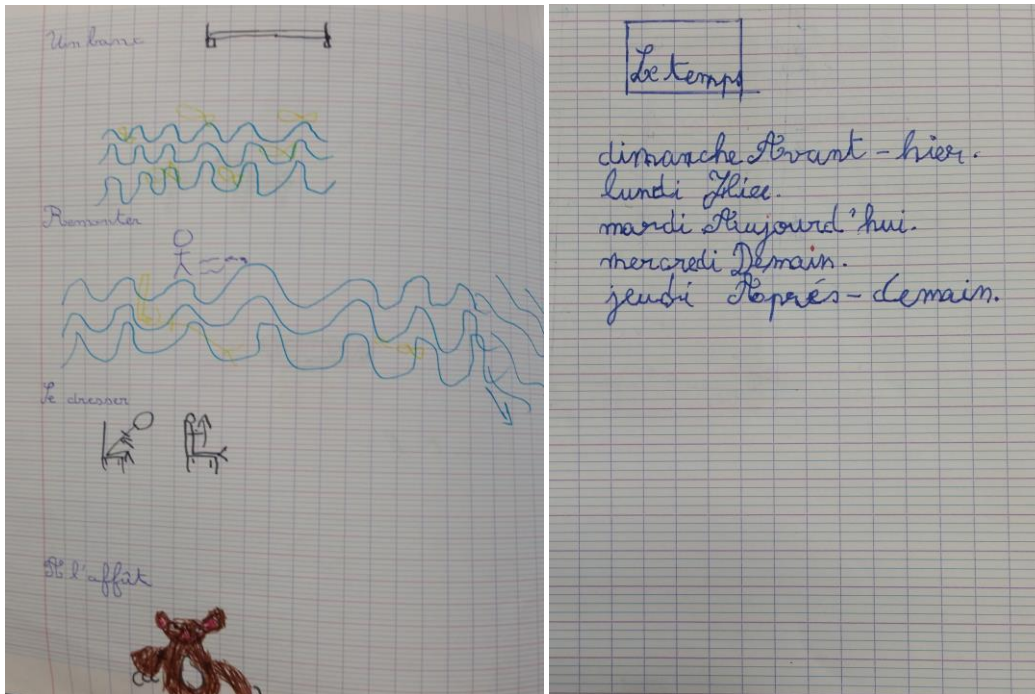 Un banc
Remonter
Se dresser
A l'affût
Le temps
dimanche Avant-hier.
lundi Hier.
mardi Aujourd'hui.
mercredi Demain.
jeudi Après-demain.